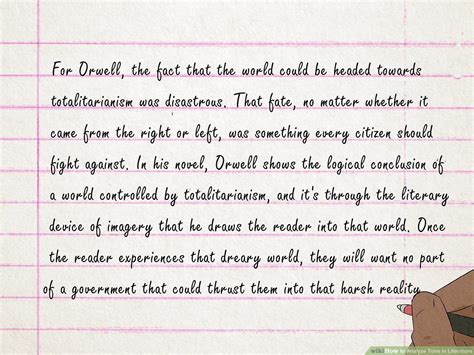 For Orwell, the fact that the world could be headed towards
totalitarianism was disastrous. That fate, no matter whether it
came from the right or left, was something every citizen should
fight against. In his novel, Orwell shows the logical conclusion of
a world controlled by totalitarianism, and it's through the literary
device of imagery that he draws the reader into that world. Once
the reader experiences that dreary world, they will want no part
of a government that could thrust them into that harsh reality
wiki How to Analyze Tone in Literature